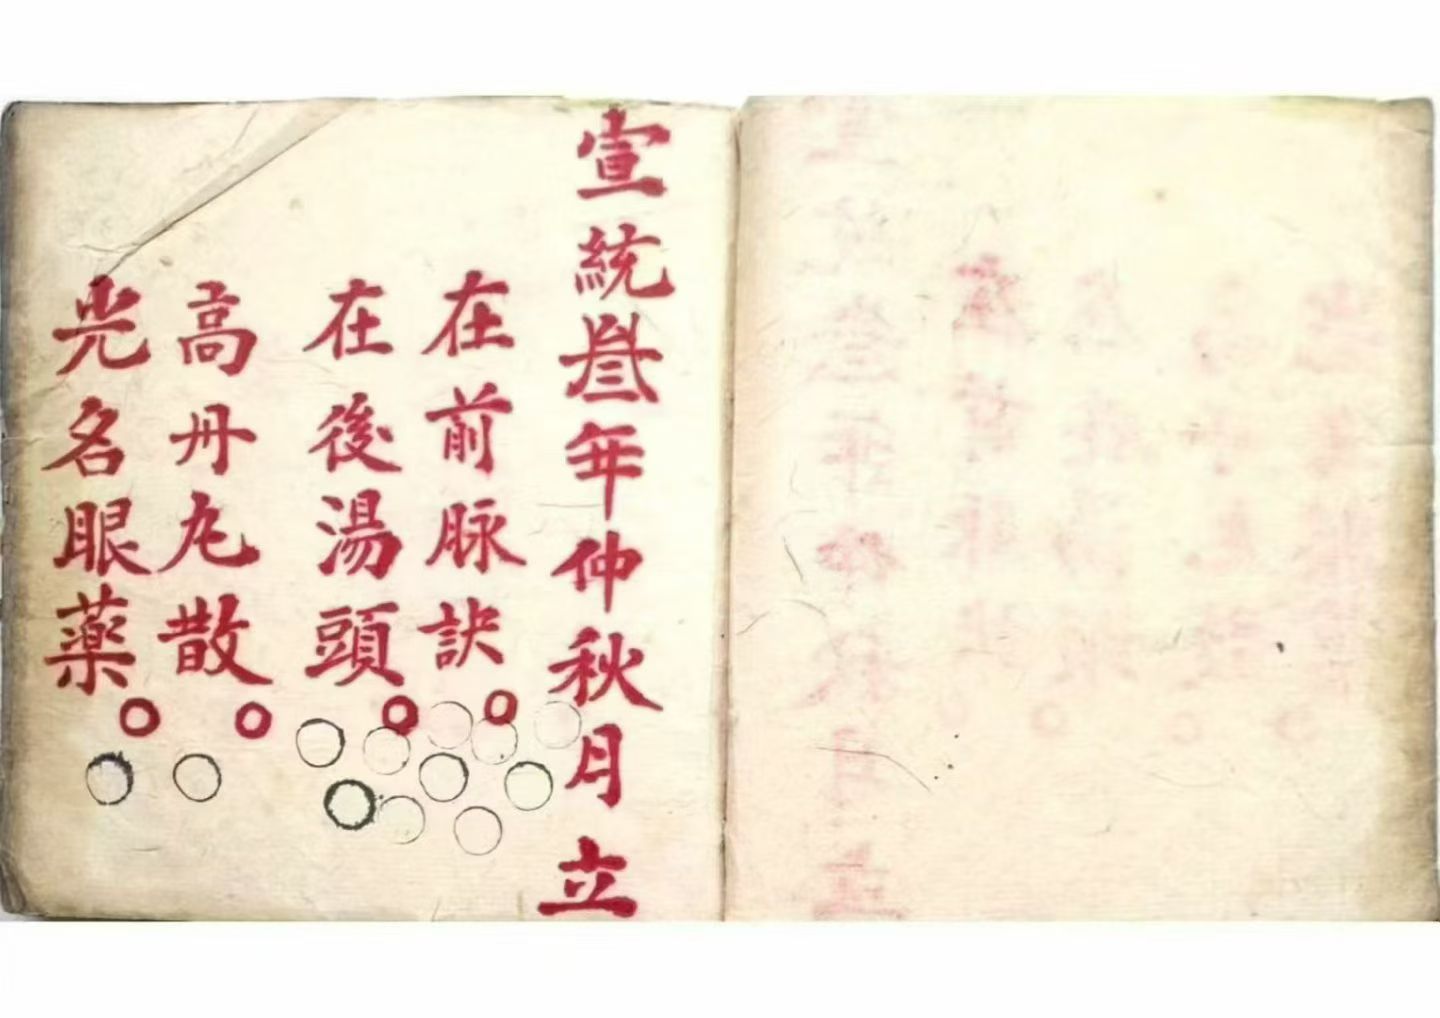 宣統叁年仲秋月立
在前脉訣
在後湯頭
高丹丸散
光名眼藥